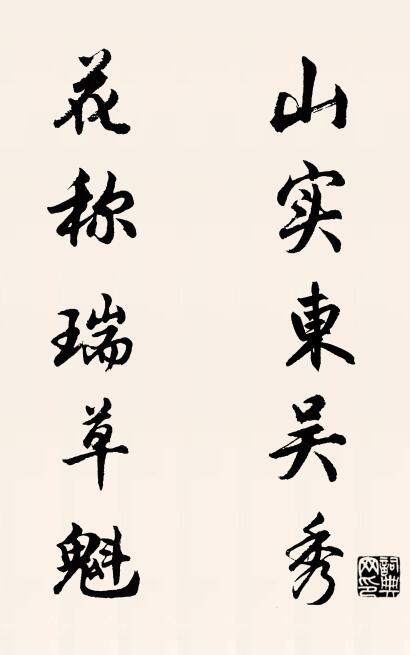 山实東吴秀
花称瑞草魁
詞典网印